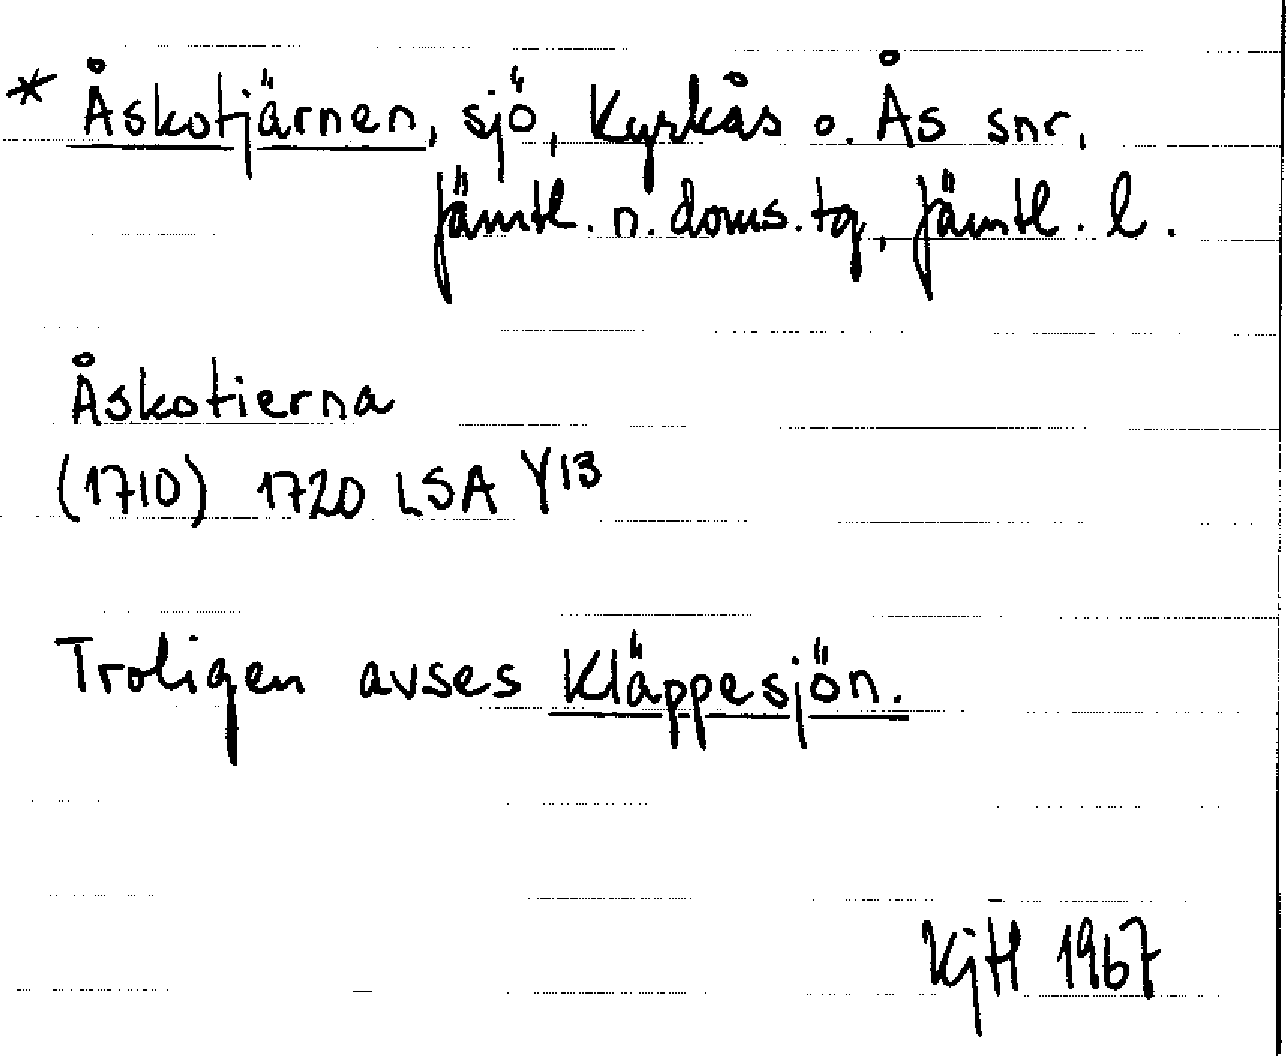 * Åskotjärnen, sjö, Kyrkås o. Ås snr,
Jämtl. n. doms. tg, Jämtl. l.
Åskotierna
(1710) 1720 LSA Y13
Troligen avses Kläppesjön.
KjH 1967